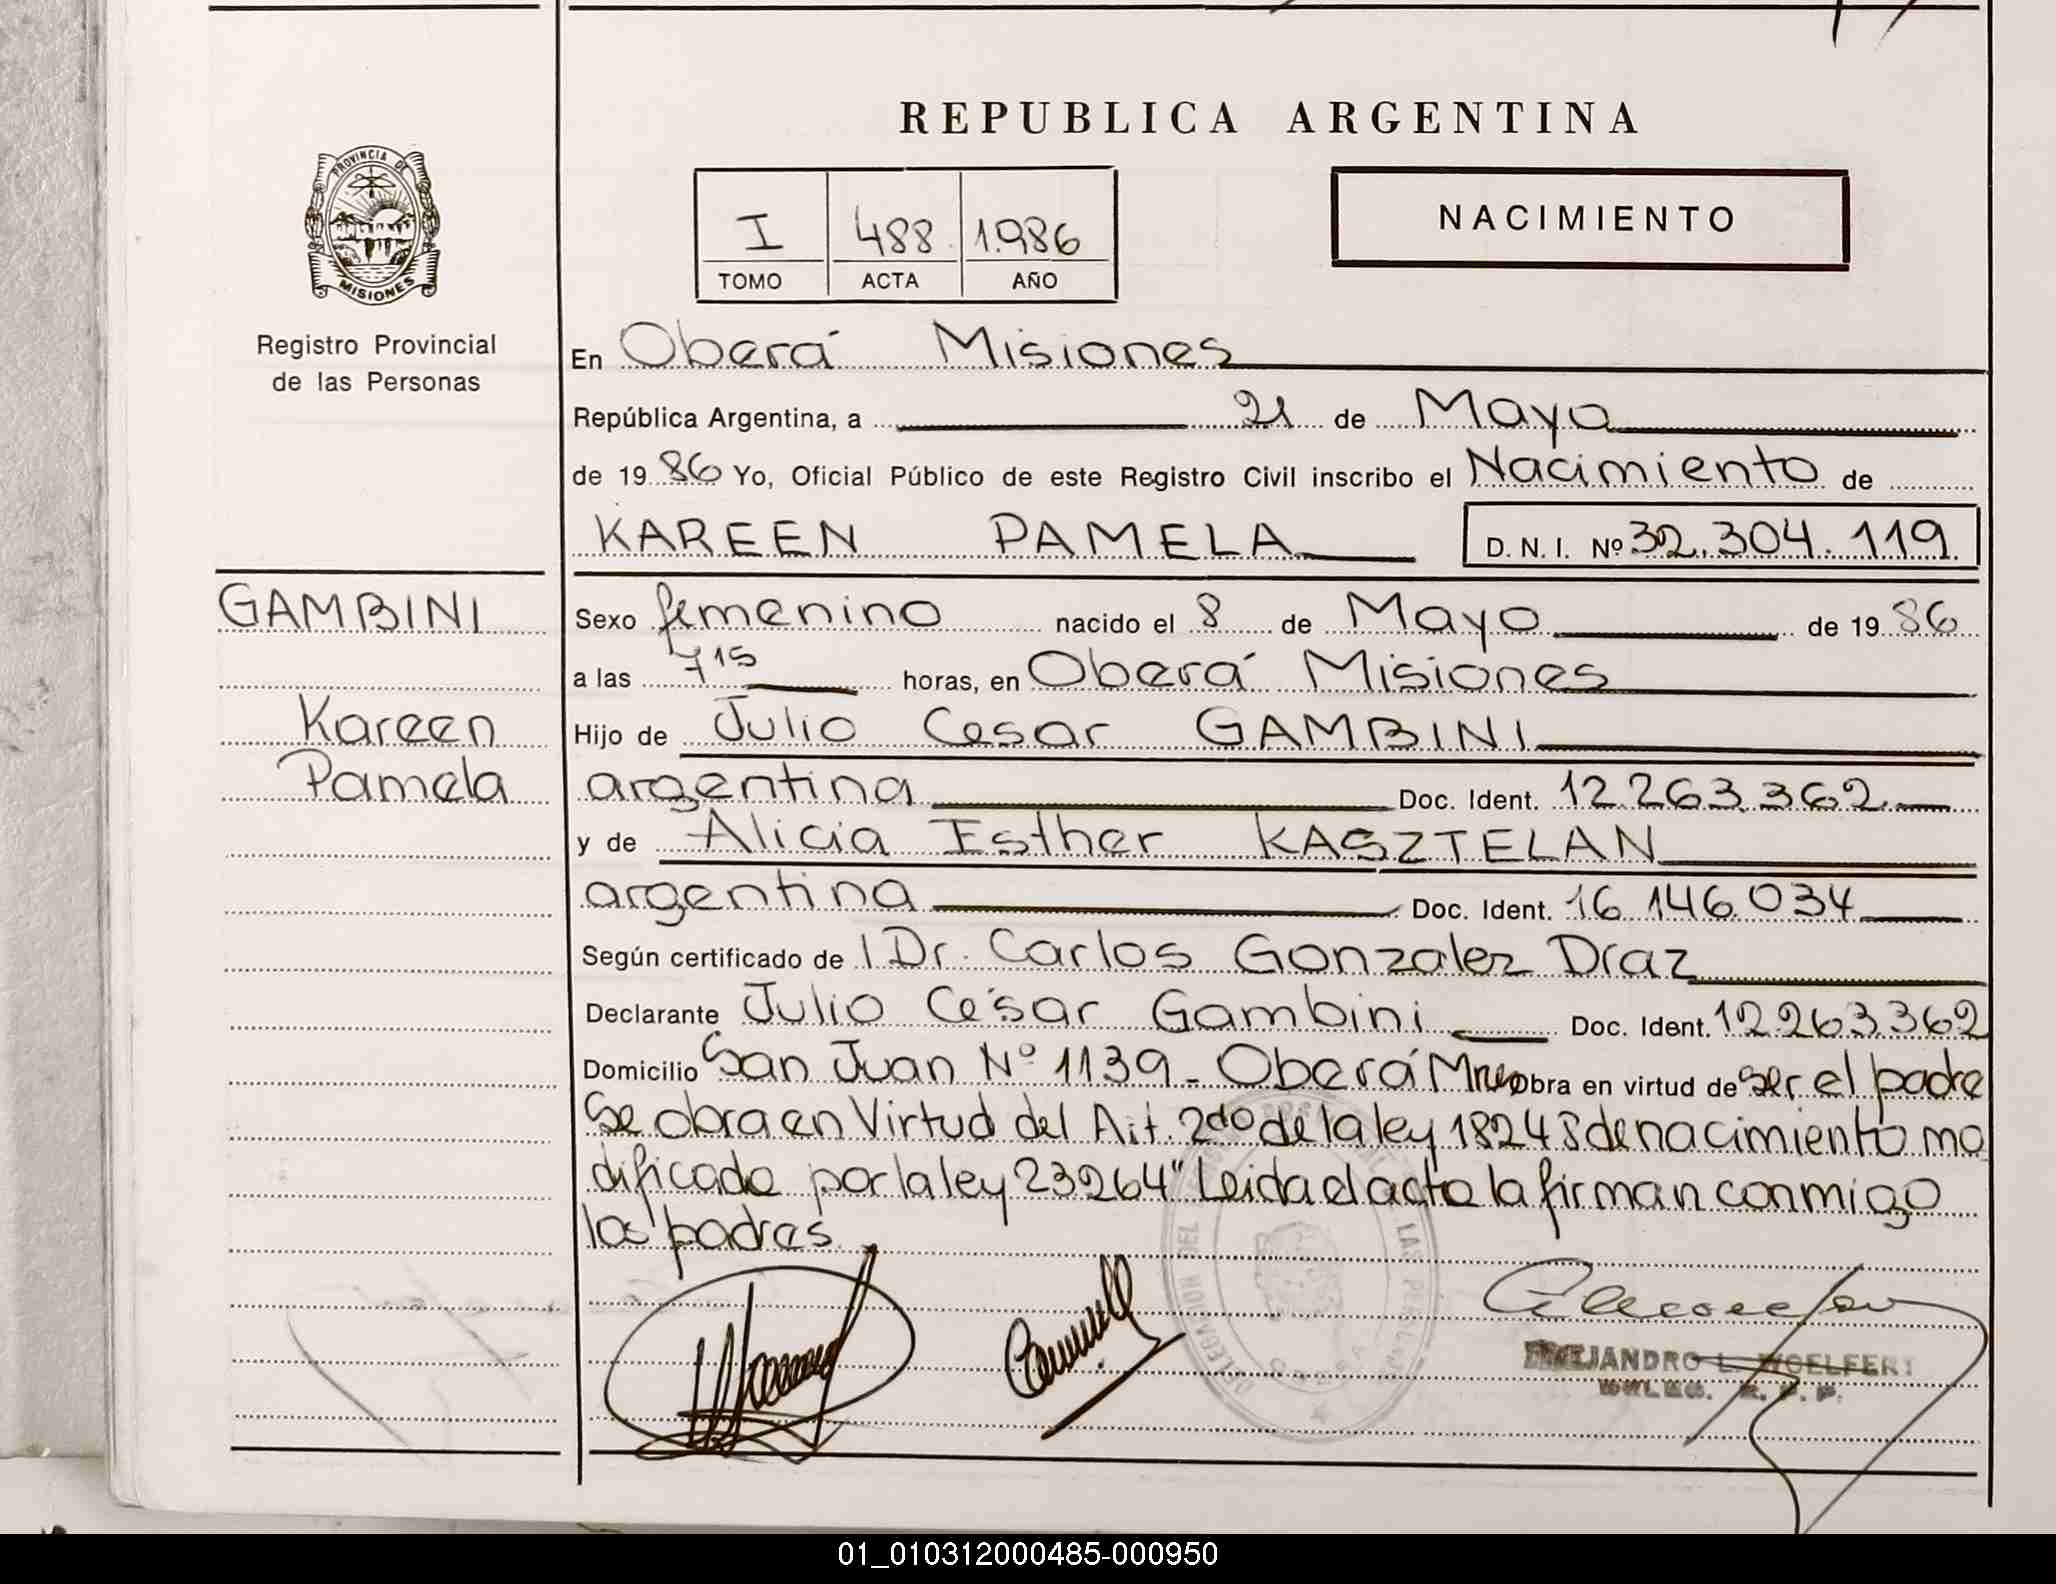 REPUBLICA ARGENTINA
PROVINCIA DE
MISIONES
Registro Provincial
de las Personas
I 488 1.986
TOMO ACTA AÑO
NACIMIENTO
En Oberá Misiones
República Argentina, a 21 de Mayo
de 1986 Yo, Oficial Público de este Registro Civil inscribo el Nacimiento de
KAREEN PAMELA D. N. I. Nº 32.304.119
GAMBINI
Kareen
Pamela
Sexo femenino nacido el 8 de Mayo de 1986
a las 7 15 horas, en Oberá Misiones
Hijo de Julio Cesar GAMBINI
argentina Doc. Ident. 12.263.362
y de Alicia Esther KASZTELAN
argentina Doc. Ident. 16.146.034
Según certificado de l Dr. Carlos Gonzalez Díaz
Declarante Julio César Gambini Doc. Ident. 12.263.362
Domicilio San Juan Nº 1139 - Oberá Mnes obra en virtud de ser el padre
Se obra en Virtud del Art. 2do de la ley 18248 de nacimiento mo
dificado por la ley 23264" Leida el acta la firman conmigo
los padres
DELEGACION DEL DE LAS PERSONAS
OBERA
ALEJANDRO L. WOELFERT
01_010312000485-000950